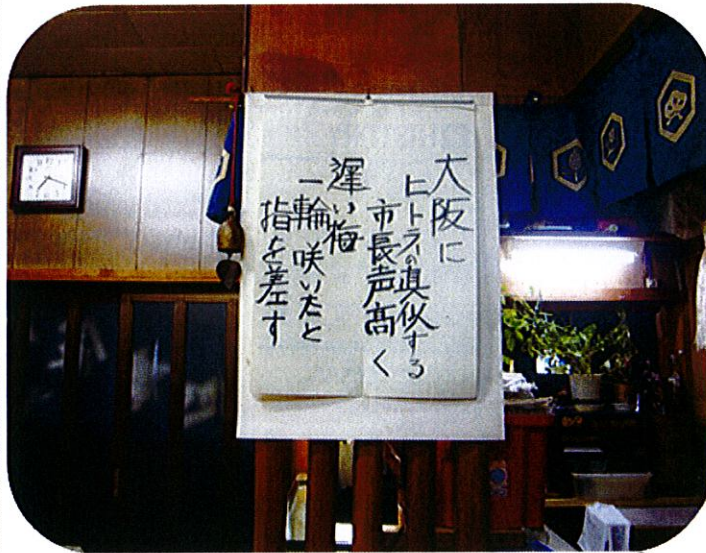 大阪に
ヒトラーの真似する
市長声高く
遅い梅
一輪咲いたと
指を差す